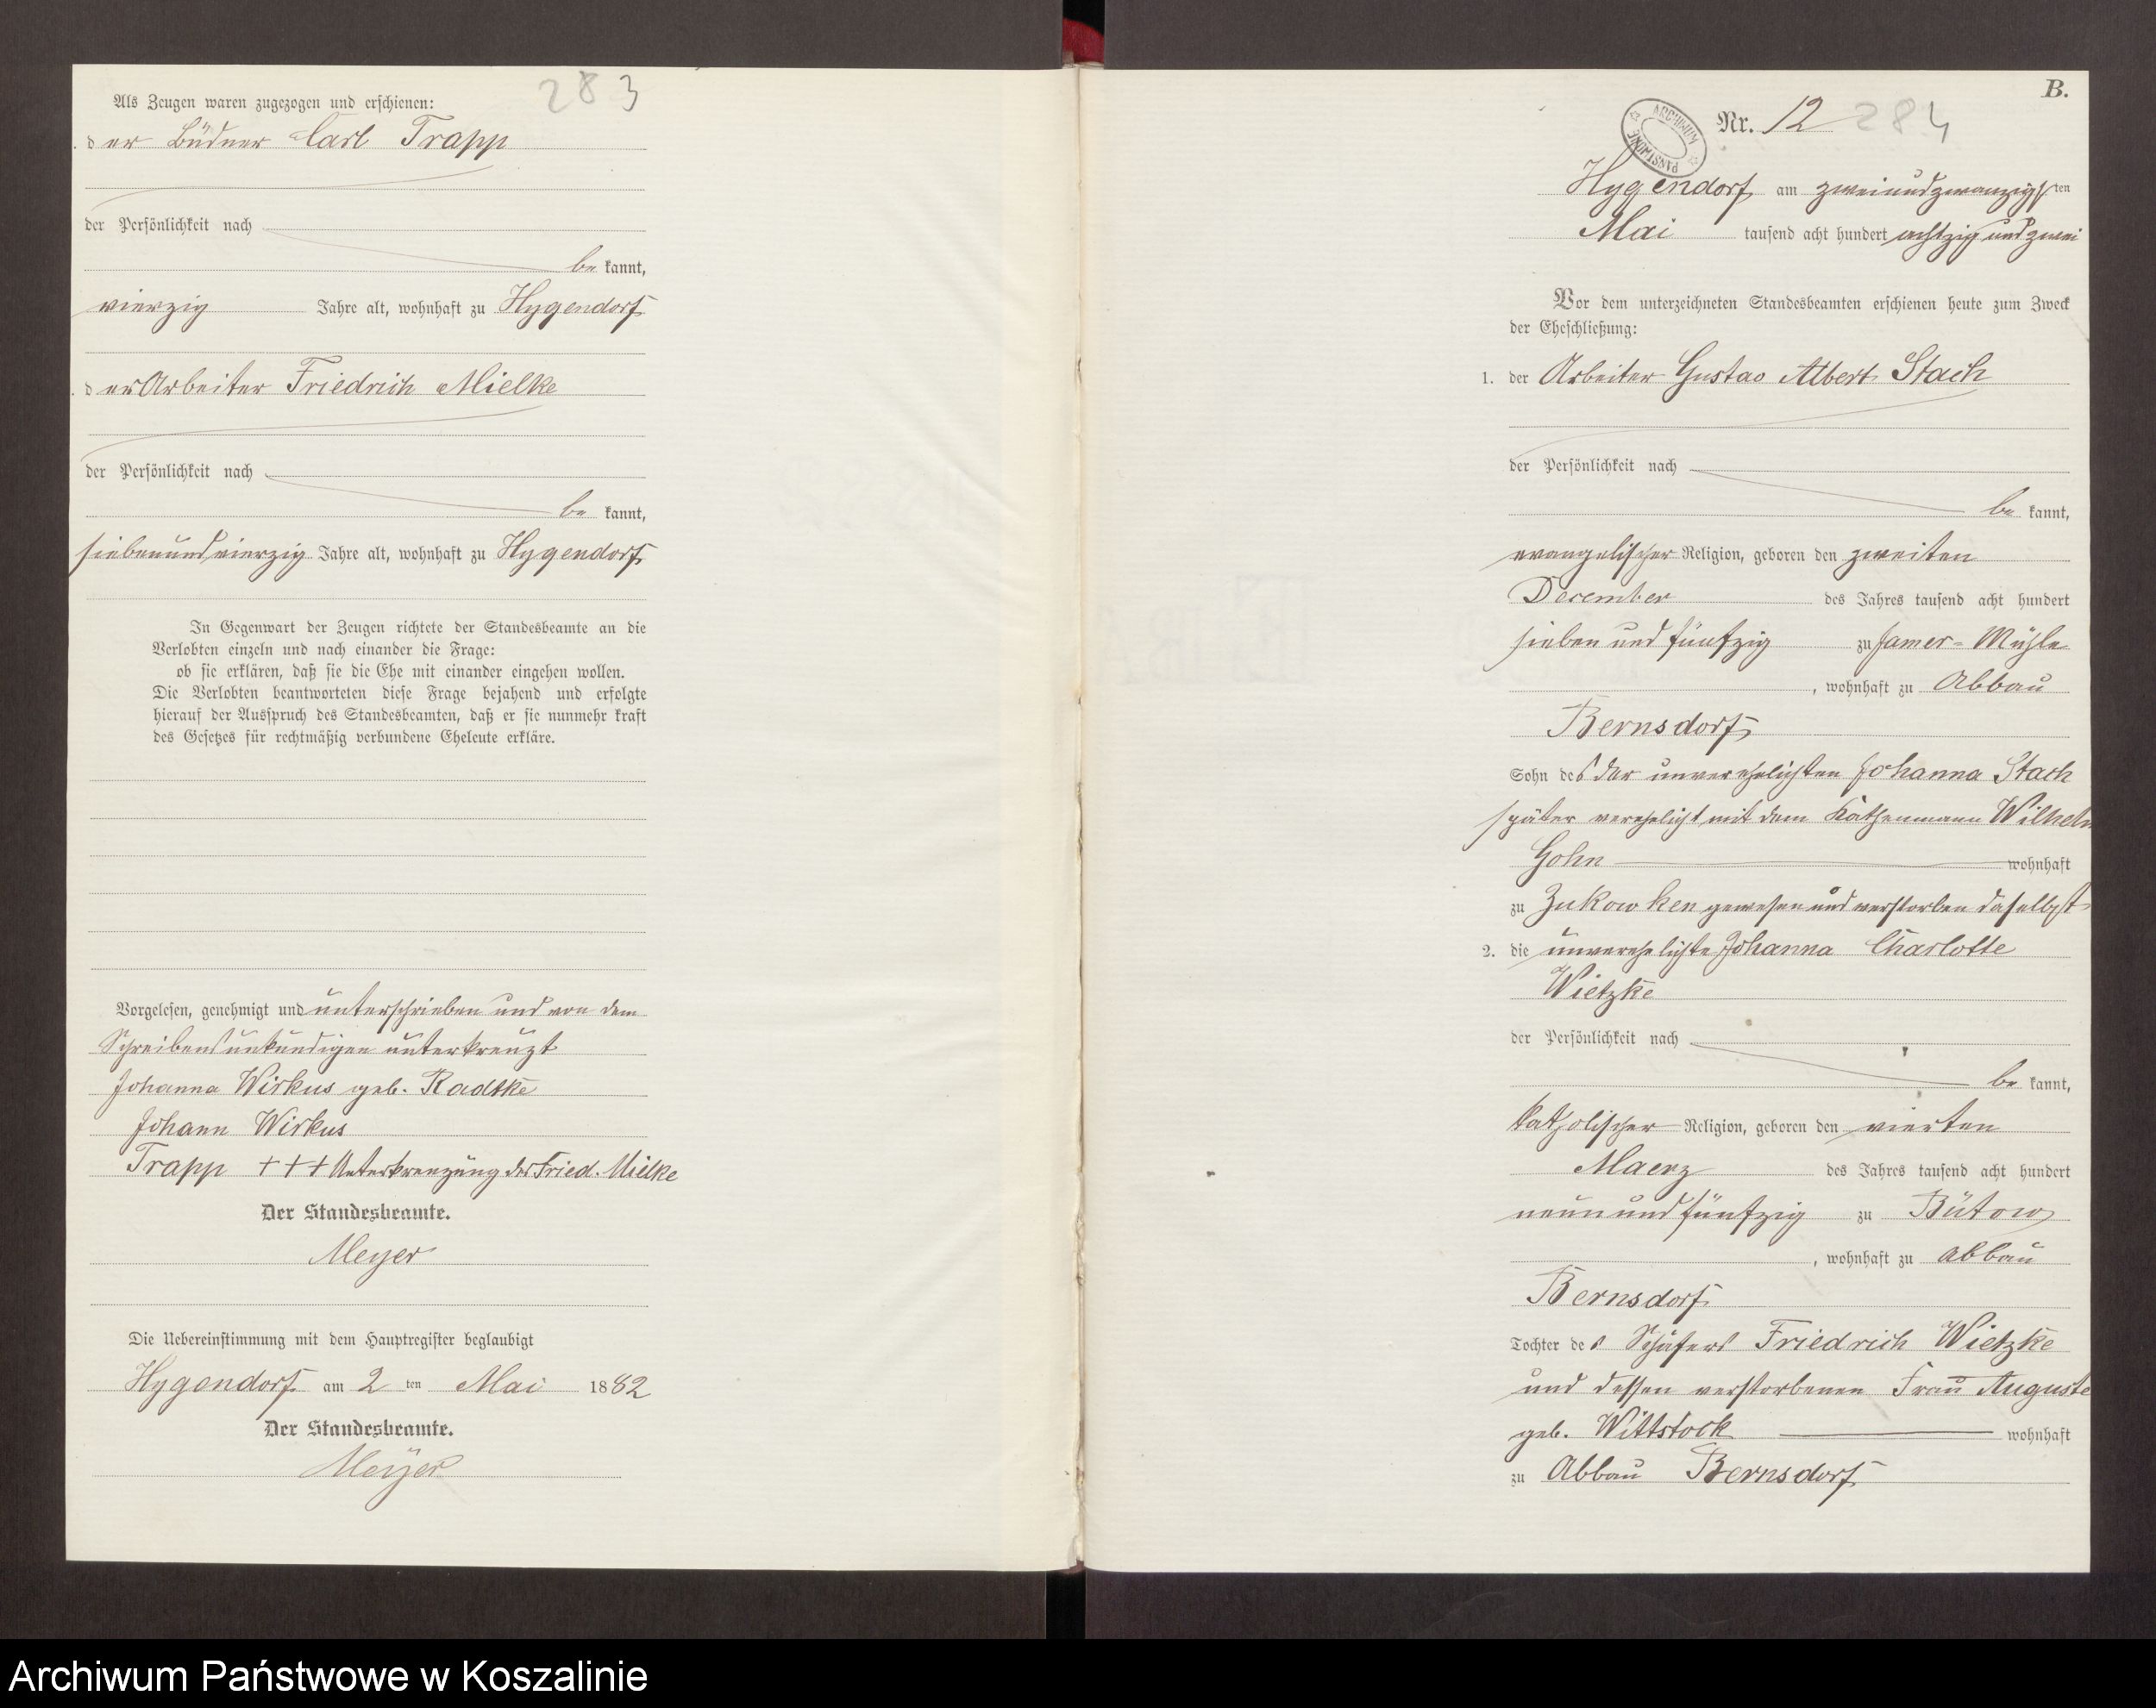 283
Als Zeugen waren zugezogen und erschienen:
der Büdner Carl Trapp
der Persönlichkeit nach
be kannt,
vierzig Jahre alt, wohnhaft zu Hygendorf
der Arbeiter Friedrich Mielke
der Persönlichkeit nach
be kannt,
siebenundvierzig Jahre alt, wohnhaft zu Hygendorf
In Gegenwart der Zeugen richtete der Standesbeamte an die
Verlobten einzeln und nach einander die Frage:
ob sie erklären, daß sie die Ehe mit einander eingehen wollen.
Die Verlobten beantworteten diese Frage bejahend und erfolgte
hierauf der Ausspruch des Standesbeamten, daß er sie nunmehr kraft
des Gesetzes für rechtmäßig verbundene Eheleute erkläre.
Vorgelesen, genehmigt und unterschrieben und von dem
Schreibensunkundigen unterkreuzt
Johanna Wirkus geb. Radtke
Johann Wirkus
Trapp +++ Unterkreuzung des Fried. Mielke
Der Standesbeamte.
Meyer
Die Uebereinstimmung mit dem Hauptregister beglaubigt
Hygendorf am 2 ten Mai 1882
Der Standesbeamte.
Meyer
B.
ARCHIWUM PAŃSTWOWE
Nr. 12 284
Hygendorf am zweiundzwanzigsten
Mai tausend acht hundert achtzig und zwei
Vor dem unterzeichneten Standesbeamten erschienen heute zum Zweck
der Eheschließung:
1. der Arbeiter Gustav Albert Stach
der Persönlichkeit nach
be kannt,
evangelischer Religion, geboren den zweiten
December des Jahres tausend acht hundert
sieben und fünfzig zu Jamer-Mühle
, wohnhaft zu Abbau
Bernsdorf
Sohn des der unverehelichten Johanna Stach
später verehelicht mit dem Käthenmann Wilhelm
Gohn wohnhaft
zu Zukowken gewesen und verstorben daselbst
2. die unverehelichte Johanna Charlotte
Wietzke
der Persönlichkeit nach
be kannt,
katholischer Religion, geboren den vierten
Maerz des Jahres tausend acht hundert
neun und fünfzig zu Bütow
, wohnhaft zu Abbau
Bernsdorf
Tochter des Schäfers Friedrich Wietzke
und dessen verstorbenen Frau Auguste
geb. Wittstock wohnhaft
zu Abbau Bernsdorf
Archiwum Państwowe w Koszalinie